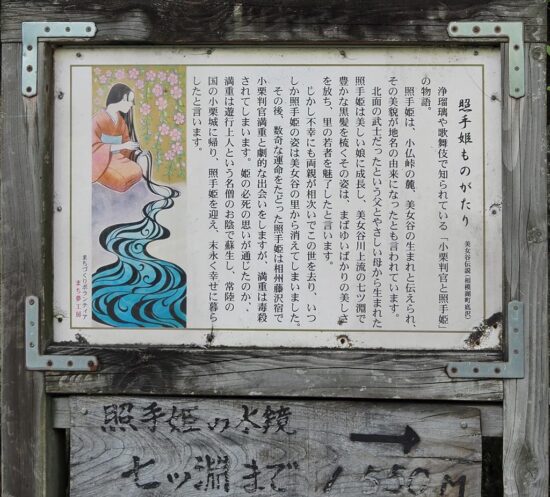 照手姫ものがたり
美女谷伝説(相模湖町底沢)
浄瑠璃や歌舞伎で知られている「小栗判官と照手姫」
の物語。
照手姫は、小仏峠の麓、美女谷の生まれと伝えられ、
その美貌が地名の由来になったとも言われています。
北面の武士だったという父とやさしい母から生まれた
照手姫は美しい娘に成長し、美女谷川上流の七ツ淵で
豊かな黒髪を梳くその姿は、まばゆいばかりの美しさ
を放ち、里の若者を魅了したと言います。
しかし不幸にも両親が相次いでこの世を去り、いつ
しか照手姫の姿は美女谷の里から消えてしまいました。
その後、数奇な運命をたどった照手姫は相州藤沢宿で
小栗判官満重と劇的な出会いをしますが、満重は毒殺
されてしまいます。姫の必死の思いが通じたのか、
満重は遊行上人という名僧のお陰で蘇生し、常陸の
国の小栗城に帰り、照手姫を迎え、末永く幸せに暮ら
したと言います。
まちづくりボランティア
まち夢工房
照手姫の水鏡
七ツ淵まで 1550M